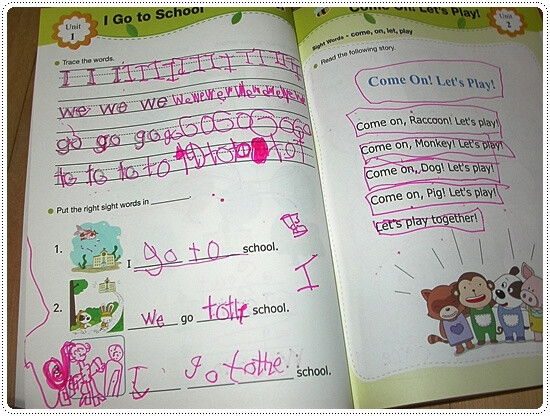 Unit 1
I Go to School
Trace the words.
I I I I I I I I I I I
we we we we we we we we we we
go go go go go go go go
to to to to to to to to
Put the right sight words in ______.
1. I go to school.
2. we go to the school.
I go to the school.
I
Come On! Let's Play!
Unit
Sight Words - come, on, let, play
Read the following story.
Come On! Let's Play!
Come on, Raccoon! Let's play!
Come on, Monkey! Let's play!
Come on, Dog! Let's play!
Come on, Pig! Let's play!
Let's play together!